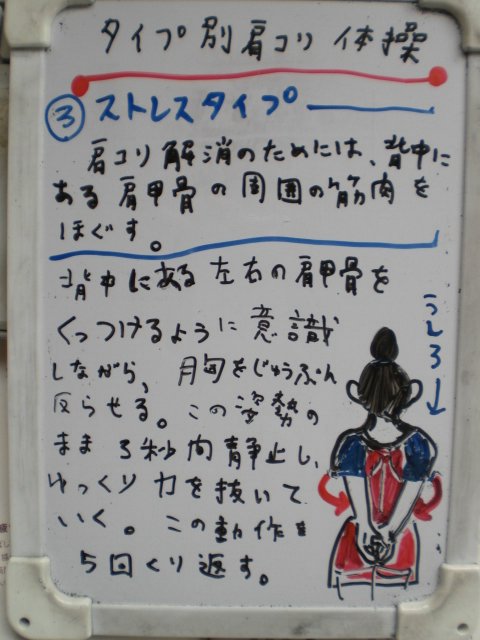 タイプ別肩コリ体操
③ストレスタイプ
肩コリ解消のためには、背中に
ある肩甲骨の周囲の筋肉を
ほぐす。
背中にある左右の肩甲骨を
くっつけるように意識
しながら、胸をじゅうぶん
反らせる。この姿勢の
まま3秒間静止し、
ゆっくり力を抜いて
いく。この動作を
5回くり返す。
うしろ